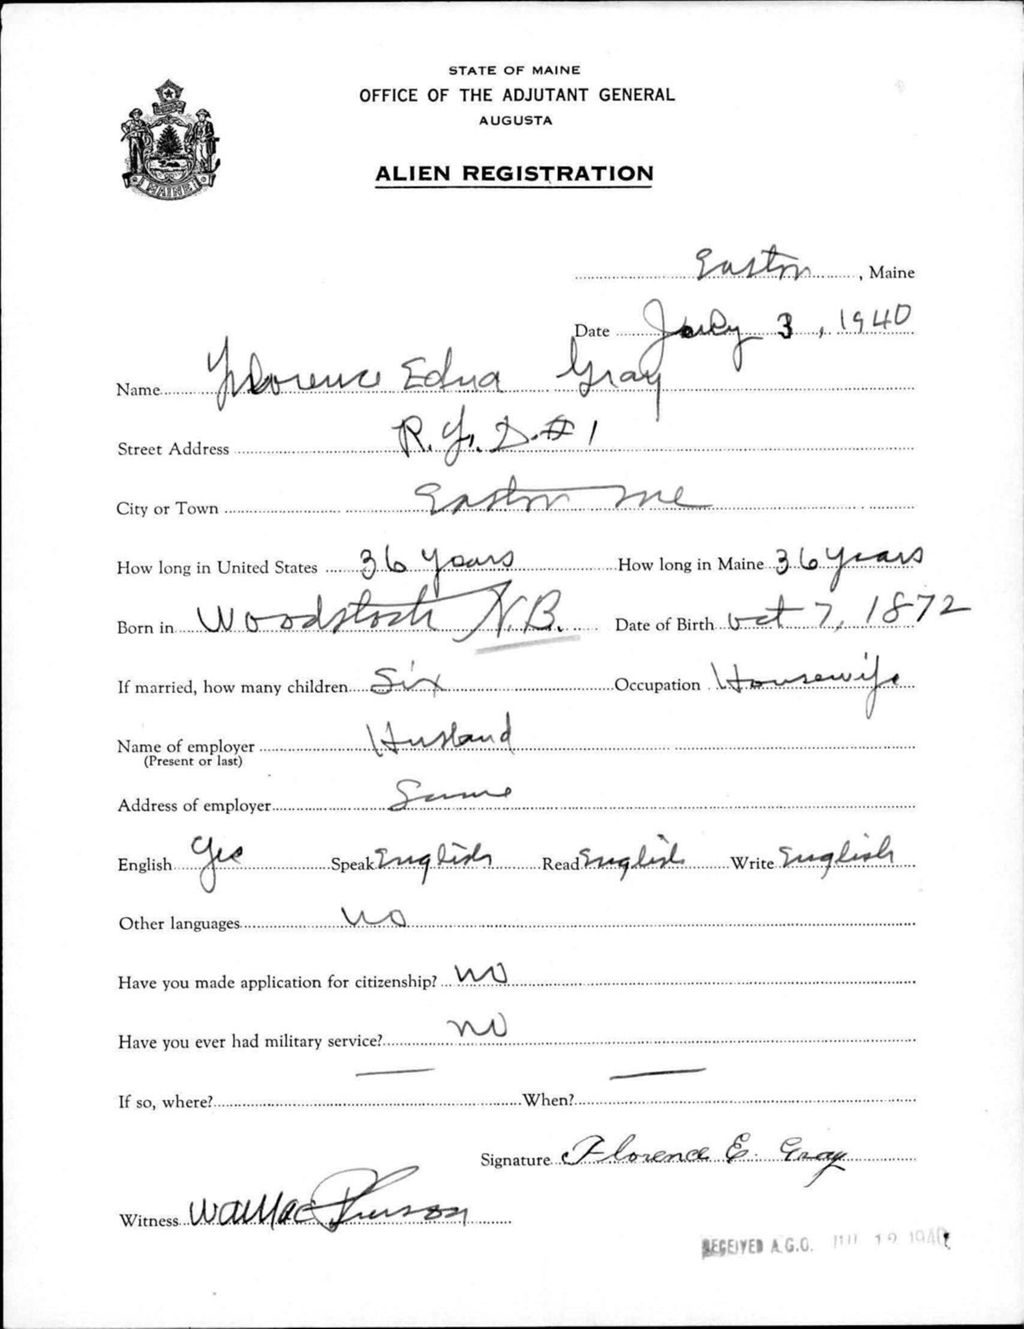 STATE OF MAINE
OFFICE OF THE ADJUTANT GENERAL
AUGUSTA
ALIEN REGISTRATION
MAINE
Easton, Maine
Date July 3, 1940
Name Florence Edna Gray
Street Address R.F.D. #1
City or Town Easton Me
How long in United States 36 years How long in Maine 36 years
Born in Woodstock N.B. Date of Birth Oct 7, 1872
If married, how many children Six Occupation Housewife
Name of employer Husband
(Present or last)
Address of employer Same
English Yes Speak English Read English Write English
Other languages No
Have you made application for citizenship? No
Have you ever had military service? No
If so, where? — When? —
Signature Florence E. Gray
Witness
RECEIVED A.G.O. JUL 12 1940